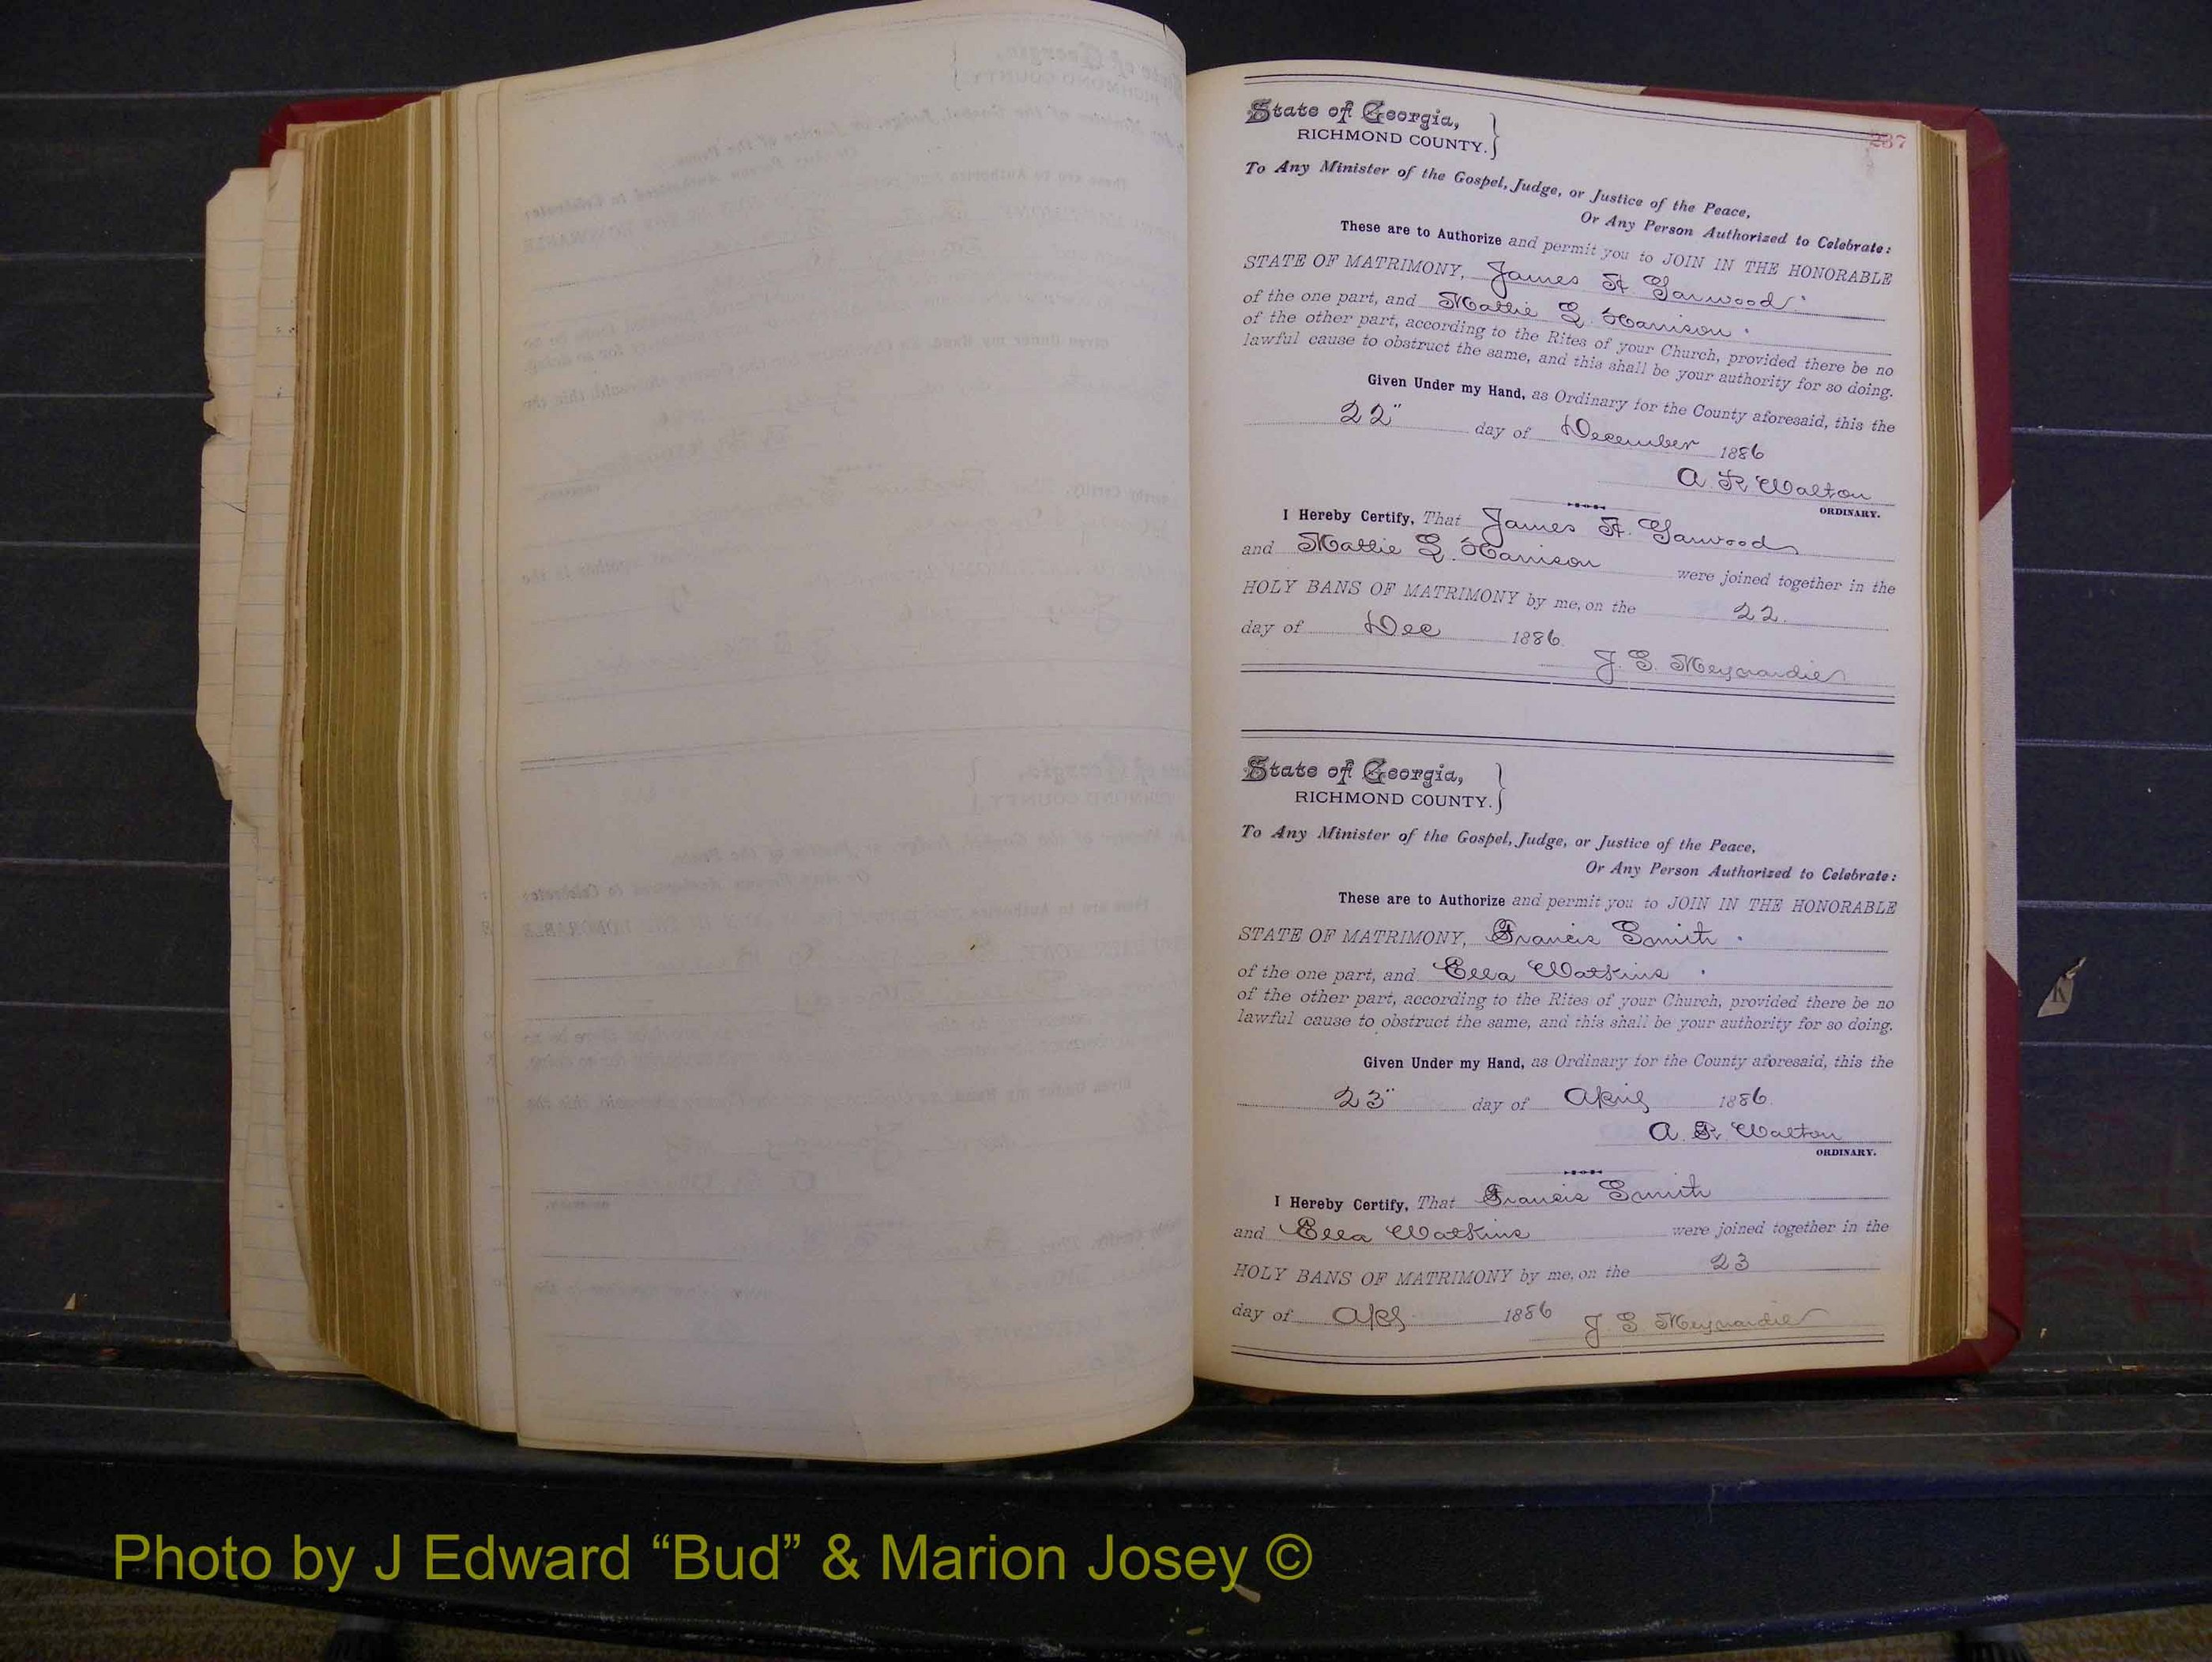 237
State of Georgia,
RICHMOND COUNTY.
To Any Minister of the Gospel, Judge, or Justice of the Peace,
Or Any Person Authorized to Celebrate:
These are to Authorize and permit you to JOIN IN THE HONORABLE
STATE OF MATRIMONY, James H. Garwood
of the one part, and Mattie L. Harrison
of the other part, according to the Rites of your Church, provided there be no
lawful cause to obstruct the same, and this shall be your authority for so doing.
Given Under my Hand, as Ordinary for the County aforesaid, this the
22" day of December 1886
A. R. Walton
ORDINARY.
I Hereby Certify, That James H. Garwood
and Mattie L. Harrison were joined together in the
HOLY BANS OF MATRIMONY by me, on the 22
day of Dec 1886
J. S. Meynardie
State of Georgia,
RICHMOND COUNTY.
To Any Minister of the Gospel, Judge, or Justice of the Peace,
Or Any Person Authorized to Celebrate:
These are to Authorize and permit you to JOIN IN THE HONORABLE
STATE OF MATRIMONY, Francis Smith
of the one part, and Ella Watkins
of the other part, according to the Rites of your Church, provided there be no
lawful cause to obstruct the same, and this shall be your authority for so doing.
Given Under my Hand, as Ordinary for the County aforesaid, this the
23" day of April 1886
A. R. Walton
ORDINARY.
I Hereby Certify, That Francis Smith
and Ella Watkins were joined together in the
HOLY BANS OF MATRIMONY by me, on the 23
day of Apl 1886 J. S. Meynardie
Photo by J Edward “Bud” & Marion Josey ©